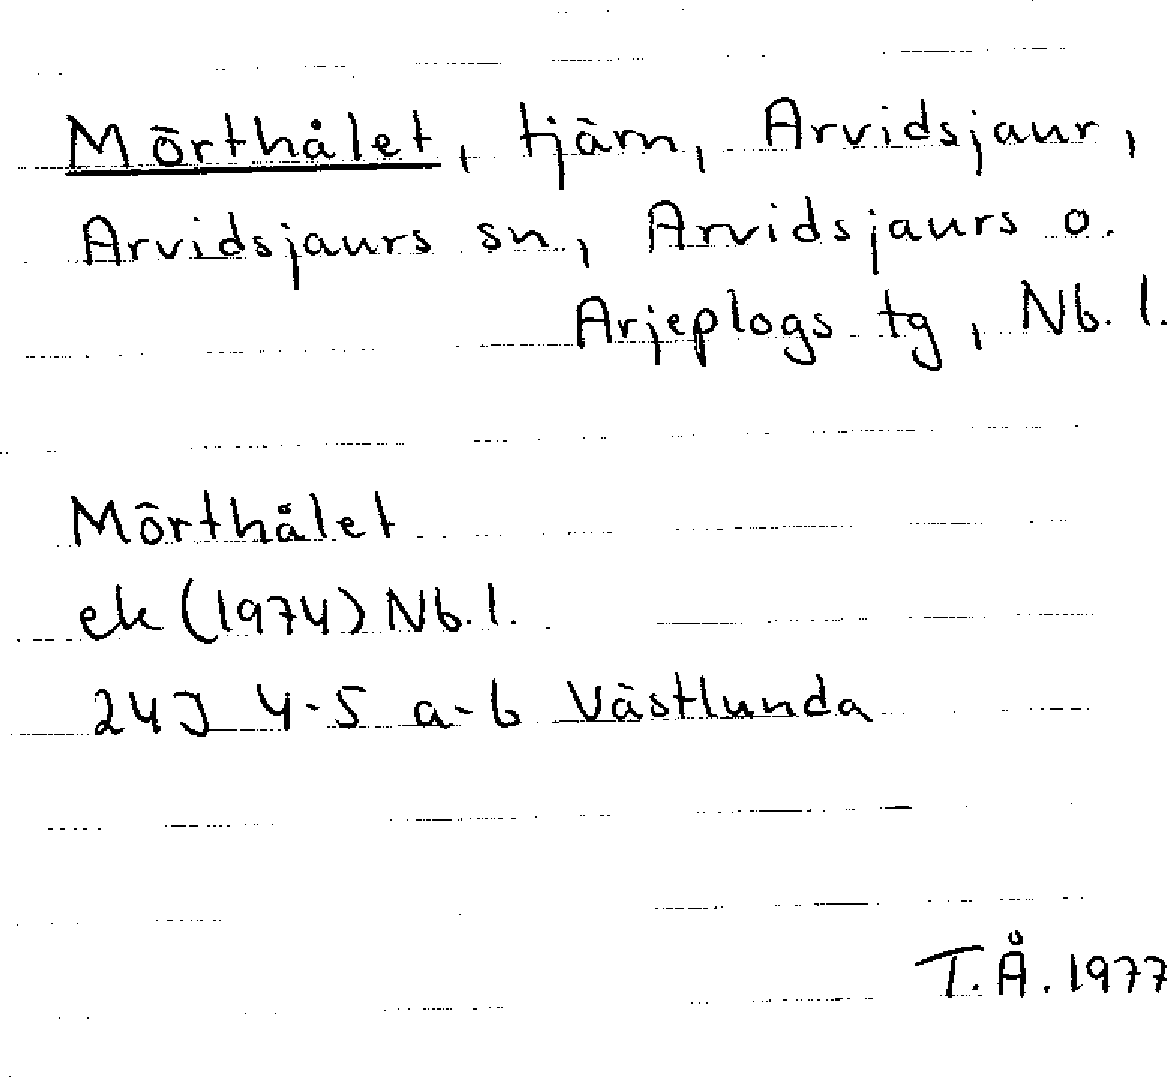 Mörthålet, tjärn, Arvidsjaur,
Arvidsjaurs sn, Arvidsjaurs o.
Arjeplogs tg, Nb. l.
Mörthålet
ek (1974) Nb. l.
24J 4-5 a-b Västlunda
T.Å. 1977